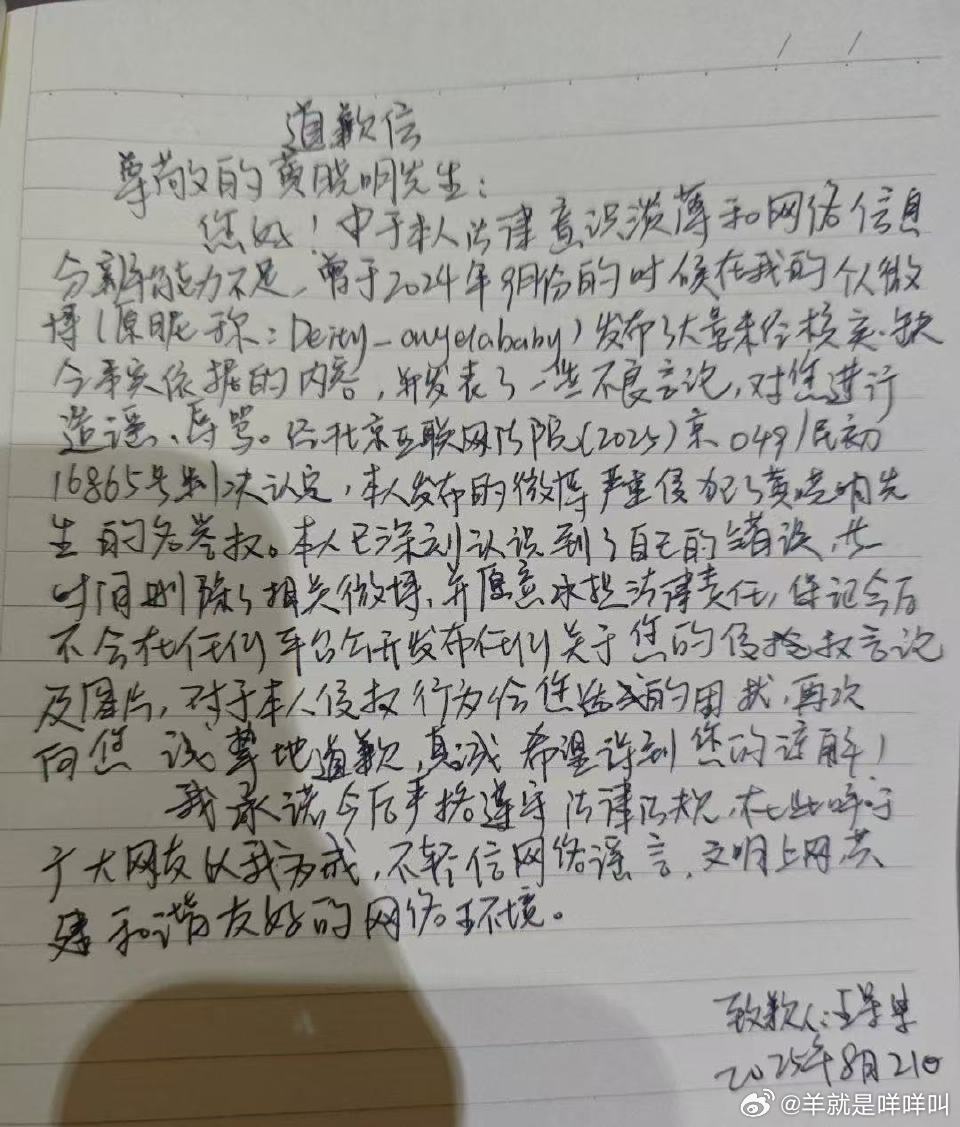 道歉信
尊敬的黄晓明先生：
您好！由于本人法律意识淡薄和网络信息
分辨能力不足，曾于2024年9月份的时候在我的个人微
博（原昵称：Deity-angelababy）发布了大量未经核实、缺
乏事实依据的内容，并发表了一些不良言论，对您进行
造谣、辱骂。经北京互联网法院（2025）京0491民初
16865号判决认定，本人发布的微博严重侵犯了黄晓明先
生的名誉权。本人已深刻认识到了自己的错误，
时间删除了相关微博，并愿意承担法律责任，保证今后
不会在任何平台公开发布任何关于您的侵权言论
及图片，对于本人侵权行为给您造成的困扰，再次
向您诚挚地道歉，真诚希望得到您的谅解！
我承诺今后严格遵守法律法规，在此呼吁
广大网友以我为戒，不轻信网络谣言，文明上网，共
建和谐友好的网络环境。
致歉人：王
2025年8月21日
@羊就是咩咩叫